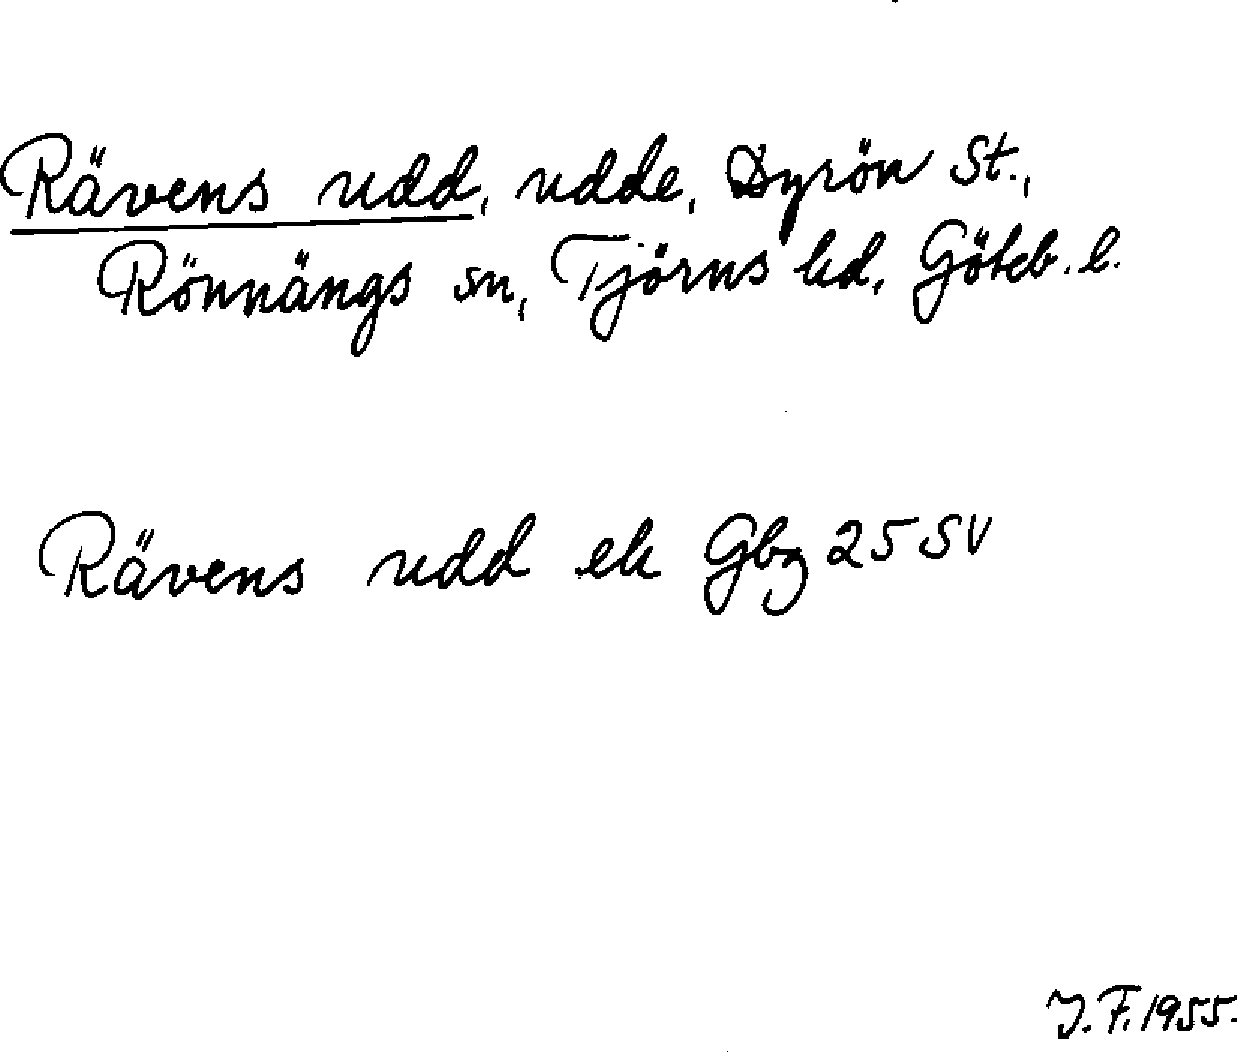 Rävens udd, udde, Dyrön St.,
Rönnängs sn, Tjörns hd, Göteb. l.
Rävens udd ek Gbg 25 SV
J. F. 1955.